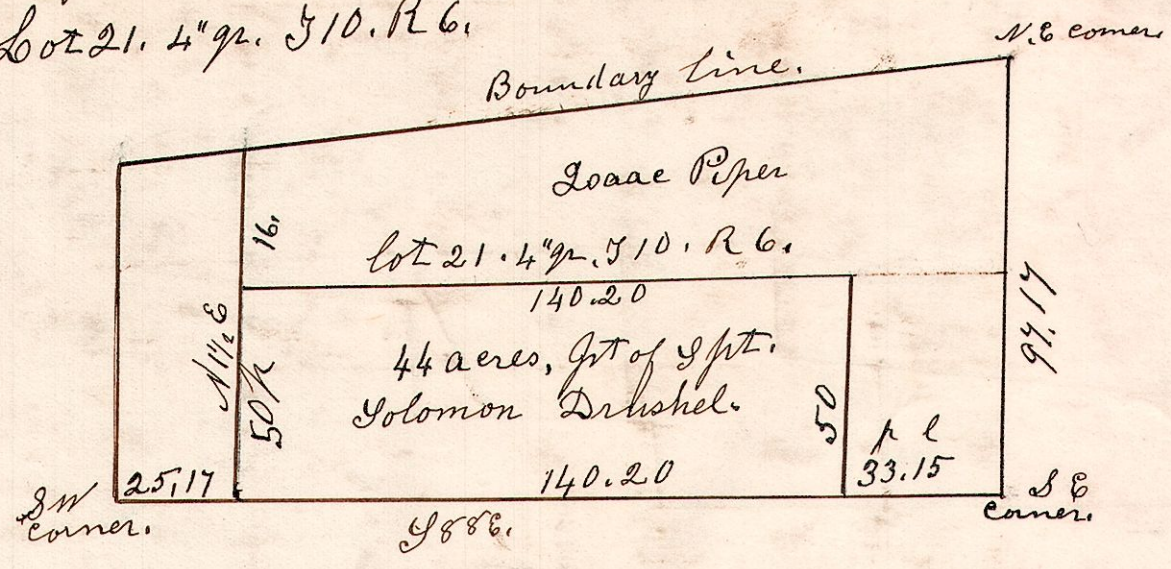 Lot 21. 4" qr. T10. R6.
N.E corner.
Boundary line.
Isaac Piper
16.
lot 21. 4" qr. T10. R6.
140.20
97.17
N 1½ E
50 p
44 acres, prt of S prt.
Solomon Drushel.
50
p l
25,17
140.20
33.15
SW
Corner.
S E
Corner.
S 88 E.